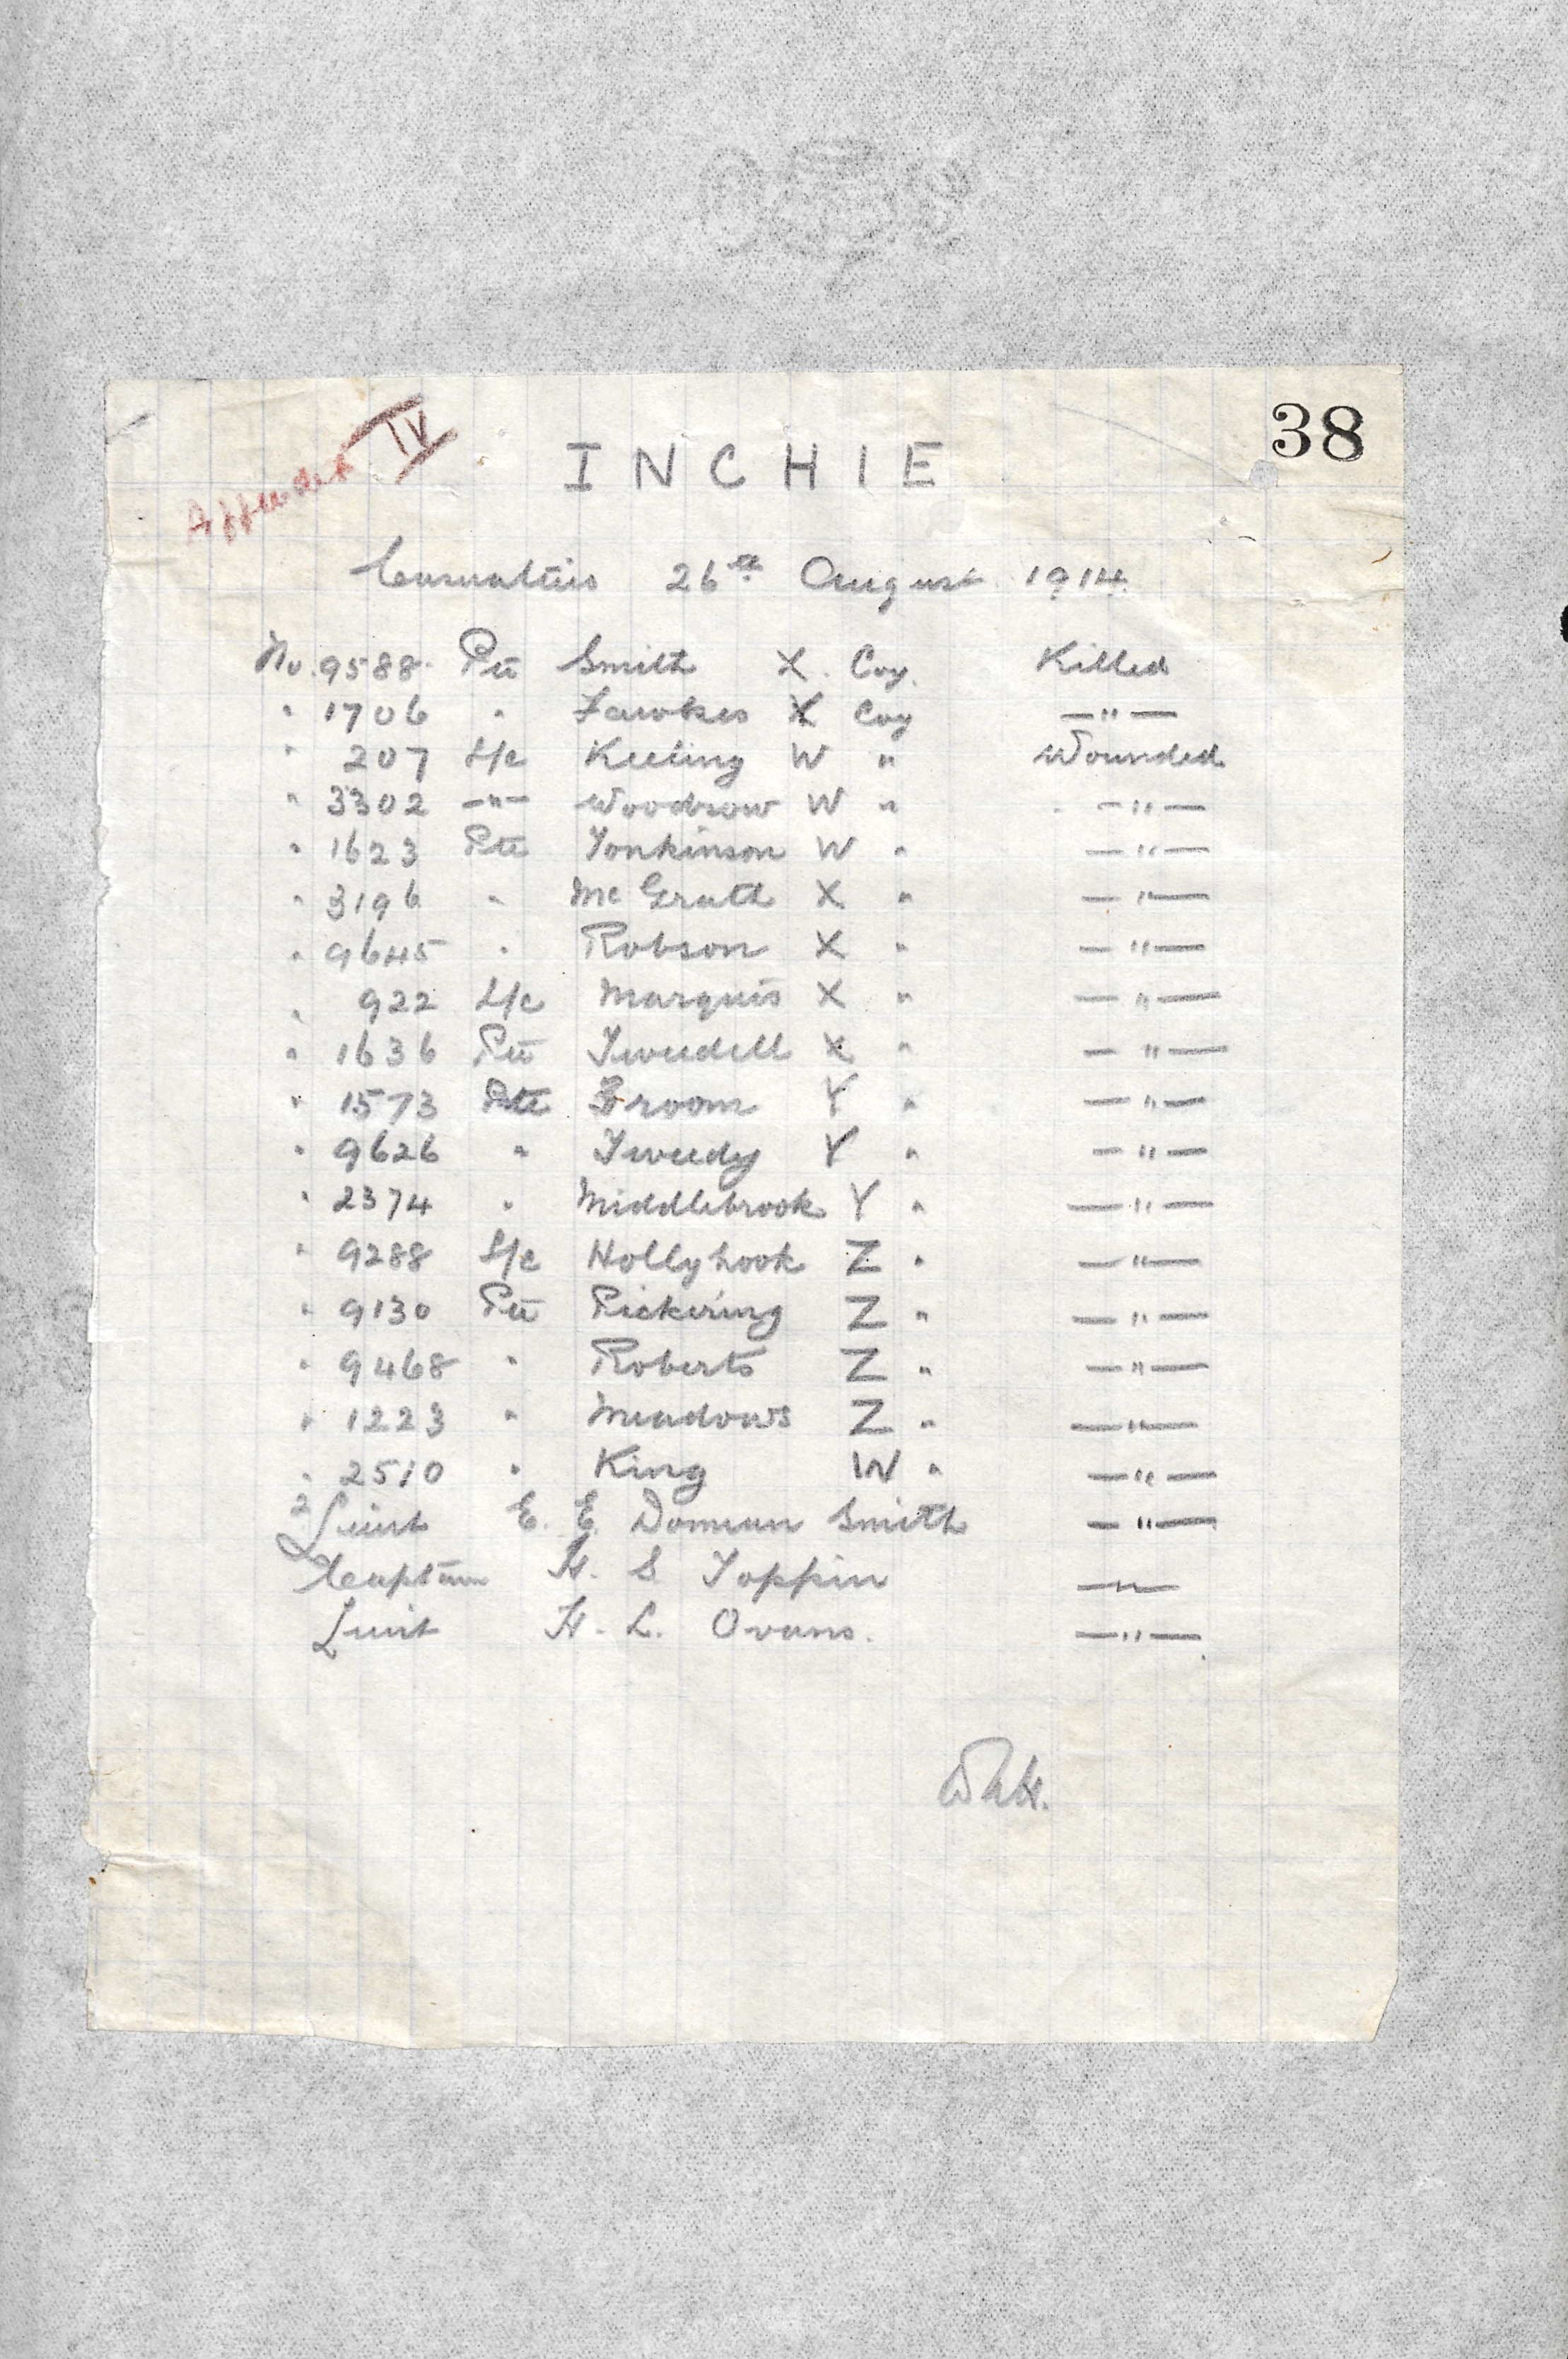 38
Appendix IV
INCHIE
Casualties 26th August 1914.
No. 9588. Pte Smith X. Coy. Killed
" 1706 " Fawkes X Coy —"—
" 207 L/c Keeling W " Wounded
" 3302 —"— Woodrow W " —"—
" 1623 Pte Tonkinson W " —"—
" 3196 " McGrath X " —"—
" 9645 " Robson X " —"—
" 922 L/c Marquis X " —"—
" 1636 Pte Tweedell X " —"—
" 1573 Pte Broom Y " —"—
" 9626 " Tweedy Y " —"—
" 2374 " Middlebrook Y " —"—
" 9288 L/c Hollyhook Z " —"—
" 9130 Pte Pickering Z " —"—
" 9468 " Roberts Z " —"—
" 1223 " Meadows Z " —"—
" 2510 " King W " —"—
2 Lieut E. E. Dorman Smith —"—
Captain H. S Toppin —"—
Lieut H. L. Ovans. —"—